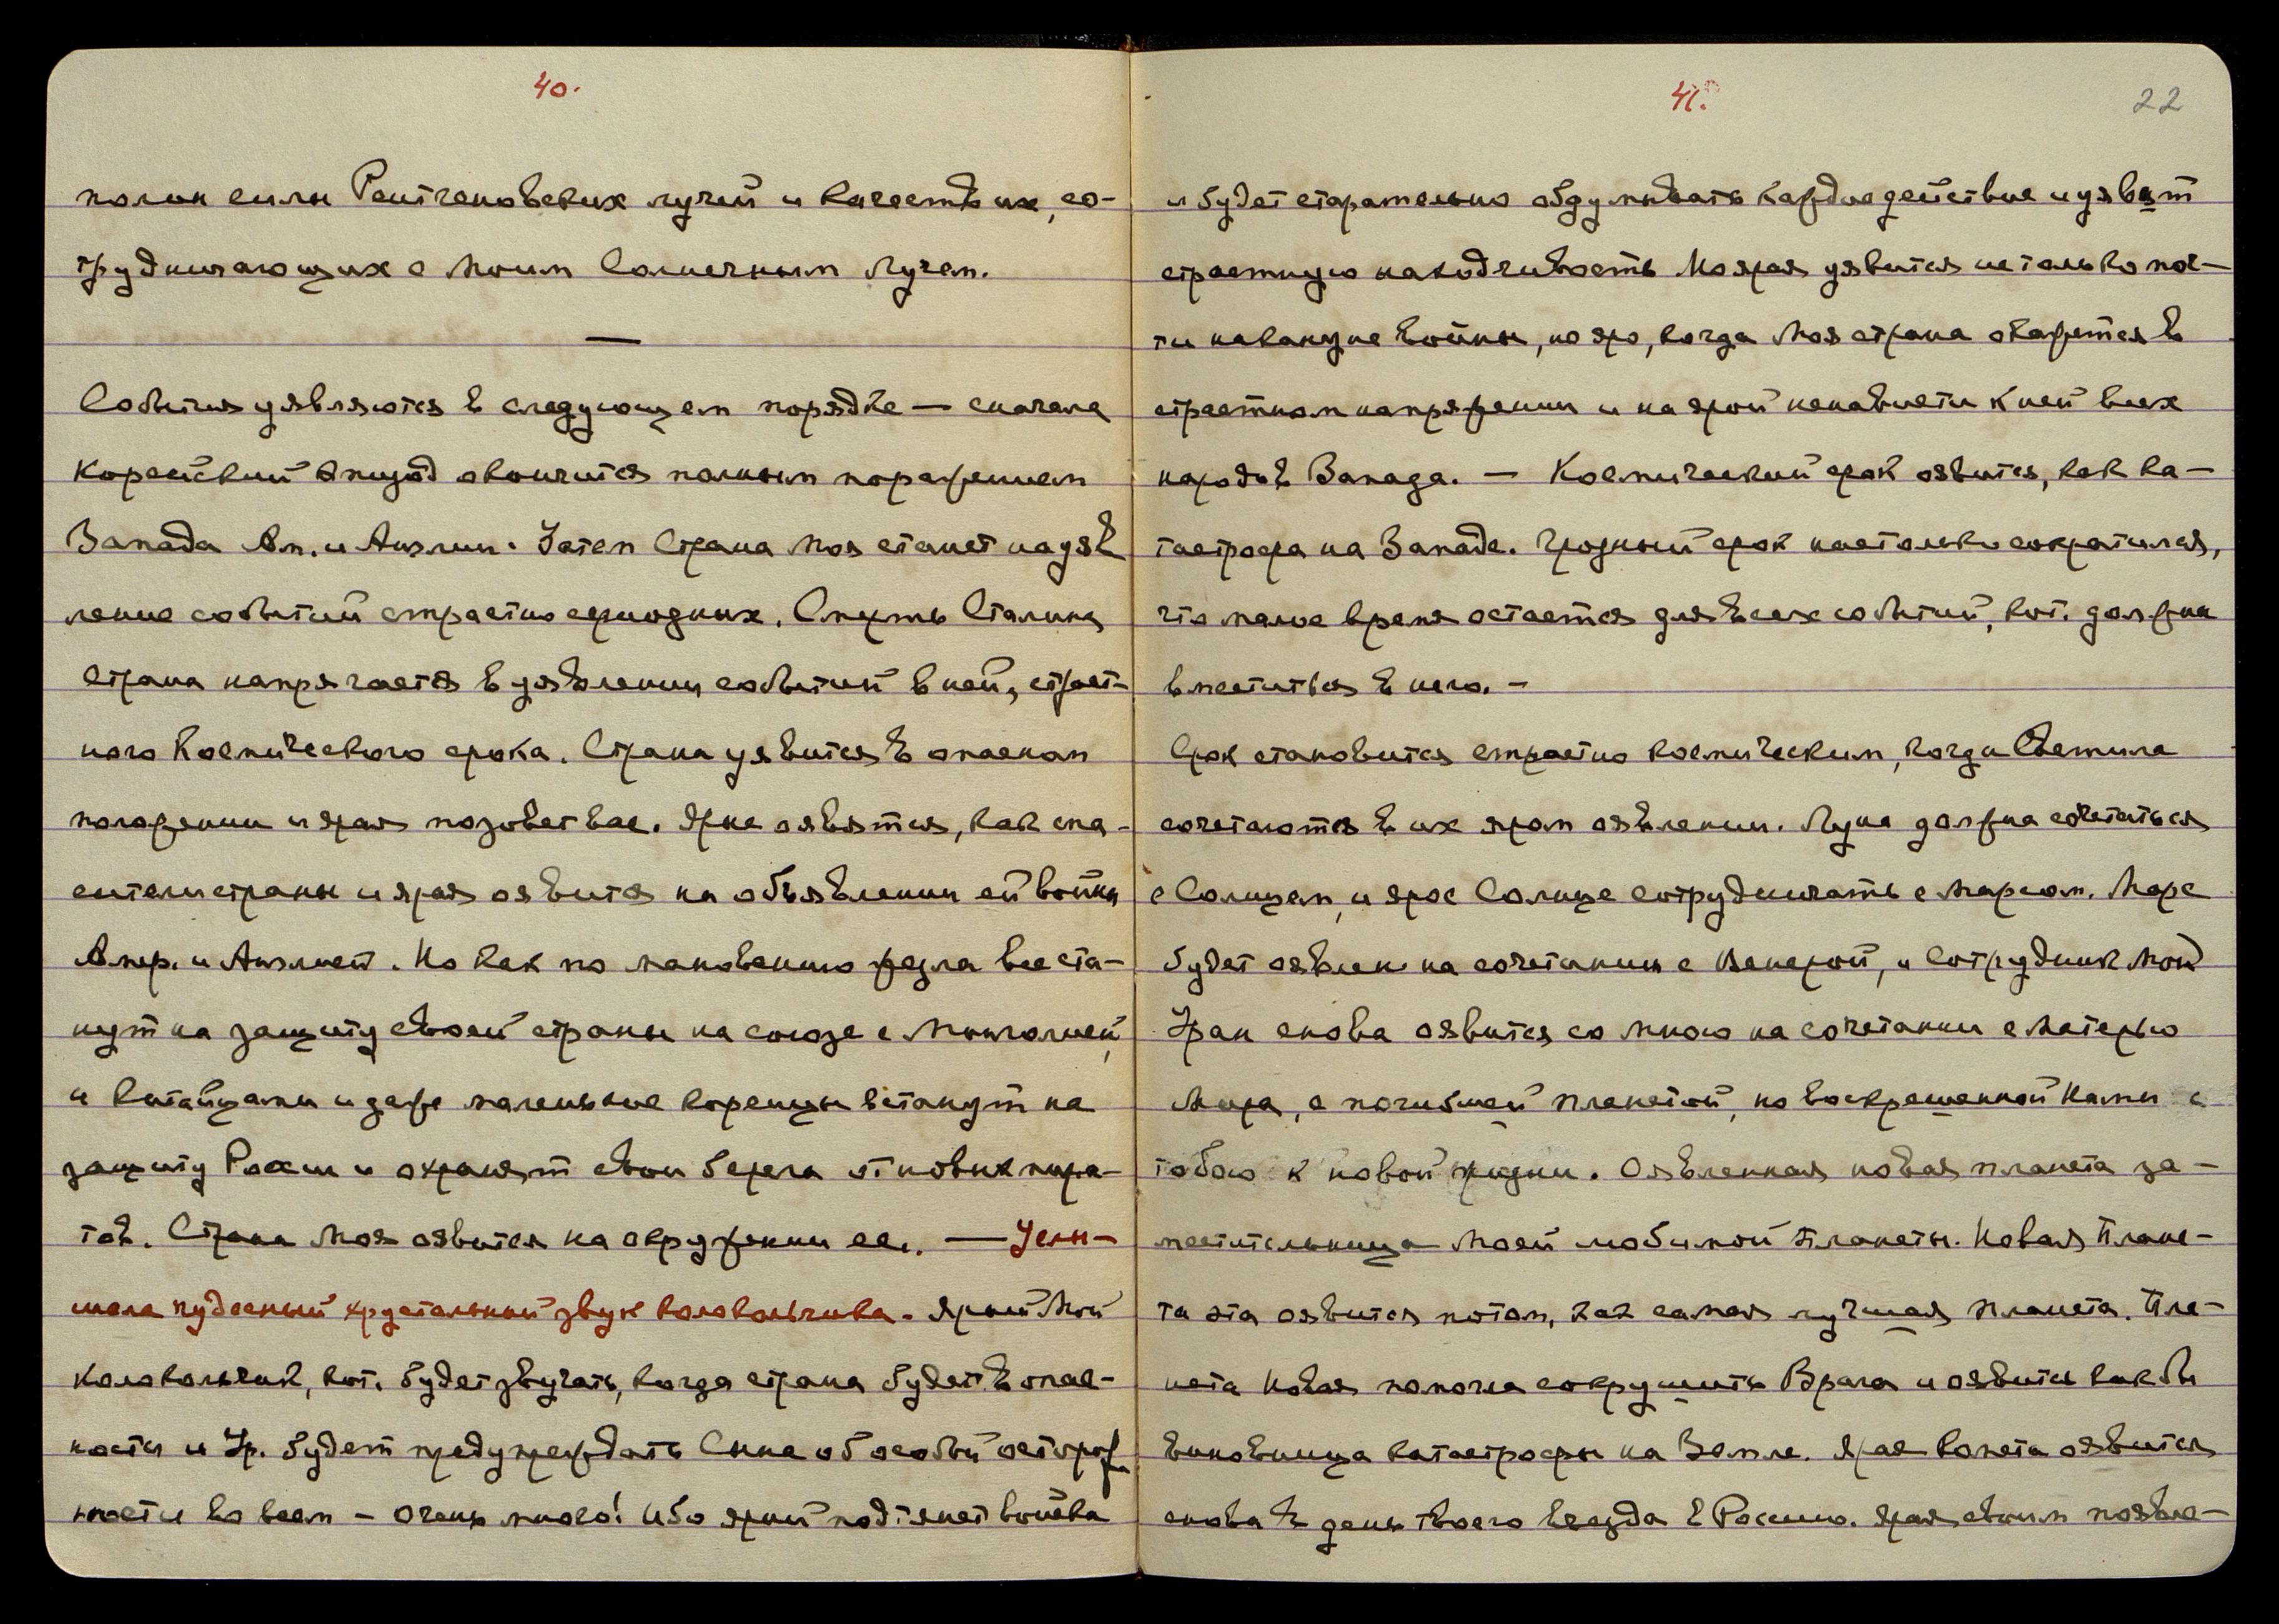 40.
полон силы Рентгеновских лучей и качеств их, со-
трудничающих с Моим Солнечным Лучем.
—
События уявляются в следующем порядке — сначала
Корейский эпизод окончится полным поражением
Запада Ам. и Англии. Затем Страна Моя станет на уяв
ление событий страстно серьозных. Смерть Сталина
Страна напрягается в уявлении событий в ней, страст-
ного Космического срока. Страна уявится в опасном
положении и ярая позовет вас. Ярые оявятся, как спа-
сители страны и ярая оявится на объявлении ей войны
Амер. и Англией. Но как по мановению жезла все ста-
нут на защиту своей страны на союзе с Монголией,
и китайцами и даже маленькие корейцы встанут на
защиту России и охранят свои берега от новых пира-
тов. Страна Моя оявится на окружении ее. — Услы-
шала чудесный хрустальный звук колокольчика. Ярый Мой
колокольчик, кот. будет звучать, когда страна будет в опас-
ности и Ур. будет предупреждать Сына об особой осторож
ности во всем – очень много! Ибо ярый подтянет войска
41. 22
и будет старательно обдумывать каждое действие и уявит
страстную находчивость Моя ярая уявится не только поч-
ти накануне войны, но яро, когда Моя страна окажется в
страстном напряжении и на ярой ненависти к ней всех
народов Запада. – Космический срок оявится, как ка-
тастрофа на Западе. Грозный срок настолько сократился,
что малое время остается для всех событий, кот. должны
вместиться в него. –
Срок становится страстно космическим, когда Светила
сочетаются в их яром оявлении. Луна должна сочетаться
с Солнцем, и ярое Солнце сотрудничать с Марсом. Марс
будет оявлен на сочетании с Венерой, и Сотрудник Мой
Уран снова оявится со Мною на сочетании с Матерью
Мира, с погибшей планетой, но воскрешенной Нами с
тобою к новой жизни. Оявленная новая планета за-
местительница Моей любимой Планеты. Новая Плане-
та эта оявится потом, как самая лучшая планета. Пла-
нета Новая помогла сокрушить Врага и оявится как бы
виновница катастрофы на Земле. Ярая комета оявится
снова в день твоего въезда в Россию. Ярая своим появле-